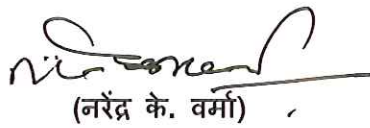 (नरेंद्र के. वर्मा)